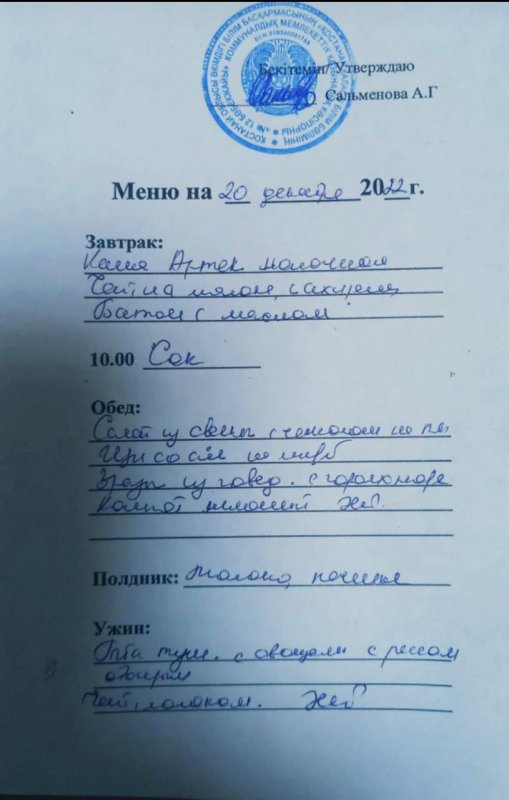 Бекітемін/ Утверждаю
Сальменова А.Г
Меню на 20 декабря 2022 г.
Завтрак:
Каша Артек молочная
Чай на молоке, с сахаром
Батон с маслом
10.00 Сок
Обед:
Салат из свеклы с чесноком
Щи со см
Зразы из говяд. с горох
Компот Хлеб.
Полдник: Молоко, печенье
Ужин:
туш. с овощами с рисом
отварным
Чай с молоком. Хлеб